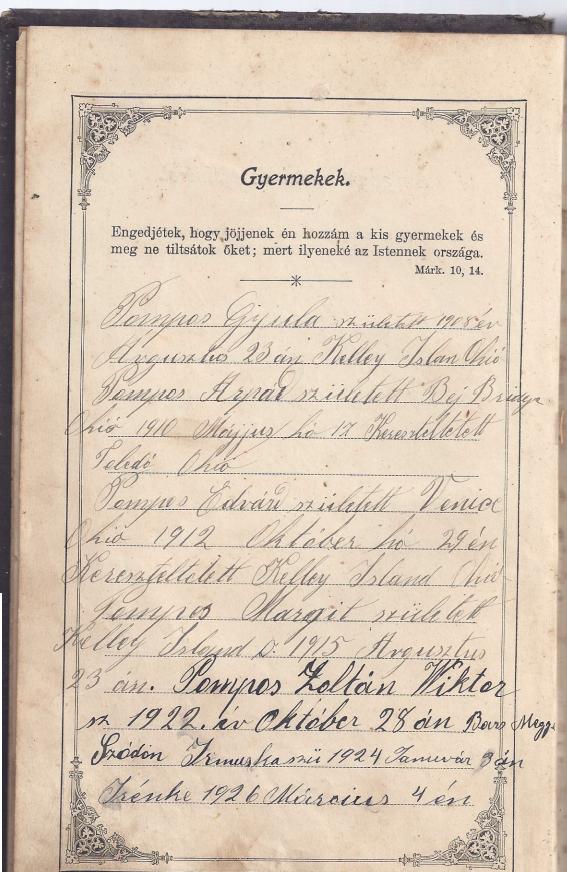 Gyermekek.
Engedjétek, hogy jöjjenek én hozzám a kis gyermekek és
meg ne tiltsátok őket; mert ilyeneké az Istennek országa.
Márk. 10, 14.
Pompos Gyula született 1908 év
Avgusztos 23 án Kelley Islan Ohió
Pompos Arpád született Bej Bridge
Ohió 1910 Májjus hó 17 Kereszteltetett
Toledó Ohió
Pompos Edvárd született Venice
Ohió 1912 Október hó 29 én
Kereszteltetett Kelley Island Ohió
Pompos Margit született
Kelley Island O. 1915 Avgusztus
23 án. Pompos Zoltán Wiktor
sz 1922. év Október 28 án Bars Megye
Szódón Irmuska szü 1924 Januvár 3 án
Irénke 1926 Március 4 én